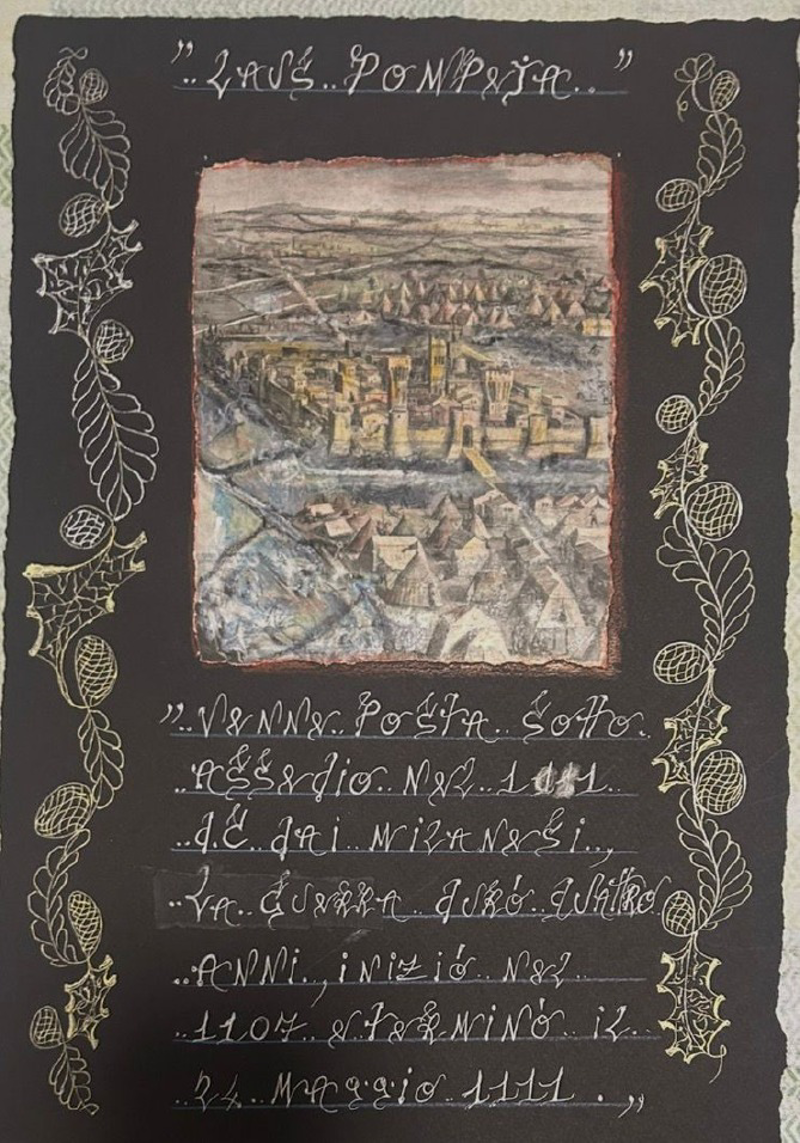 ".. LAUS.. POMPEJA.. "
".. VENNE.. POSTA.. SOTTO..
.. ASSEDIO.. NEL.. 1111..
.. d.C.. dAI.. MILANESI..,
.. LA.. GUERRA.. dURÒ.. QUATTRO..
.. ANNI.., INIZIÒ.. NEL..
.. 1107.. E.. TERMINÒ.. IL..
.. 24.. MAGGIO.. 1111.. . "